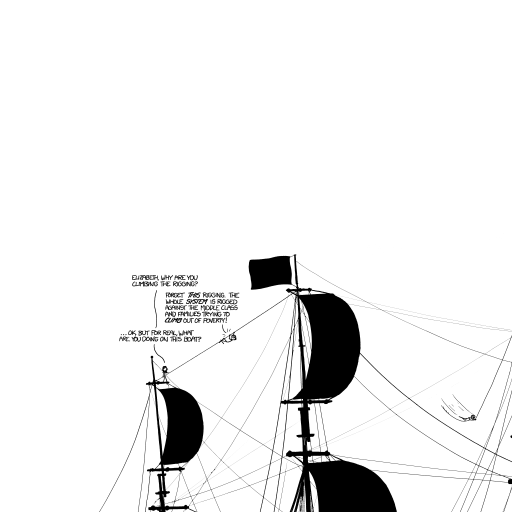 ELIZABETH, WHY ARE YOU
CLIMBING THE RIGGING?
FORGET THIS RIGGING. THE
WHOLE SYSTEM IS RIGGED
AGAINST THE MIDDLE CLASS
AND FAMILIES TRYING TO
CLIMB OUT OF POVERTY!
...OK, BUT FOR REAL, WHAT
ARE YOU DOING ON THIS BOAT?